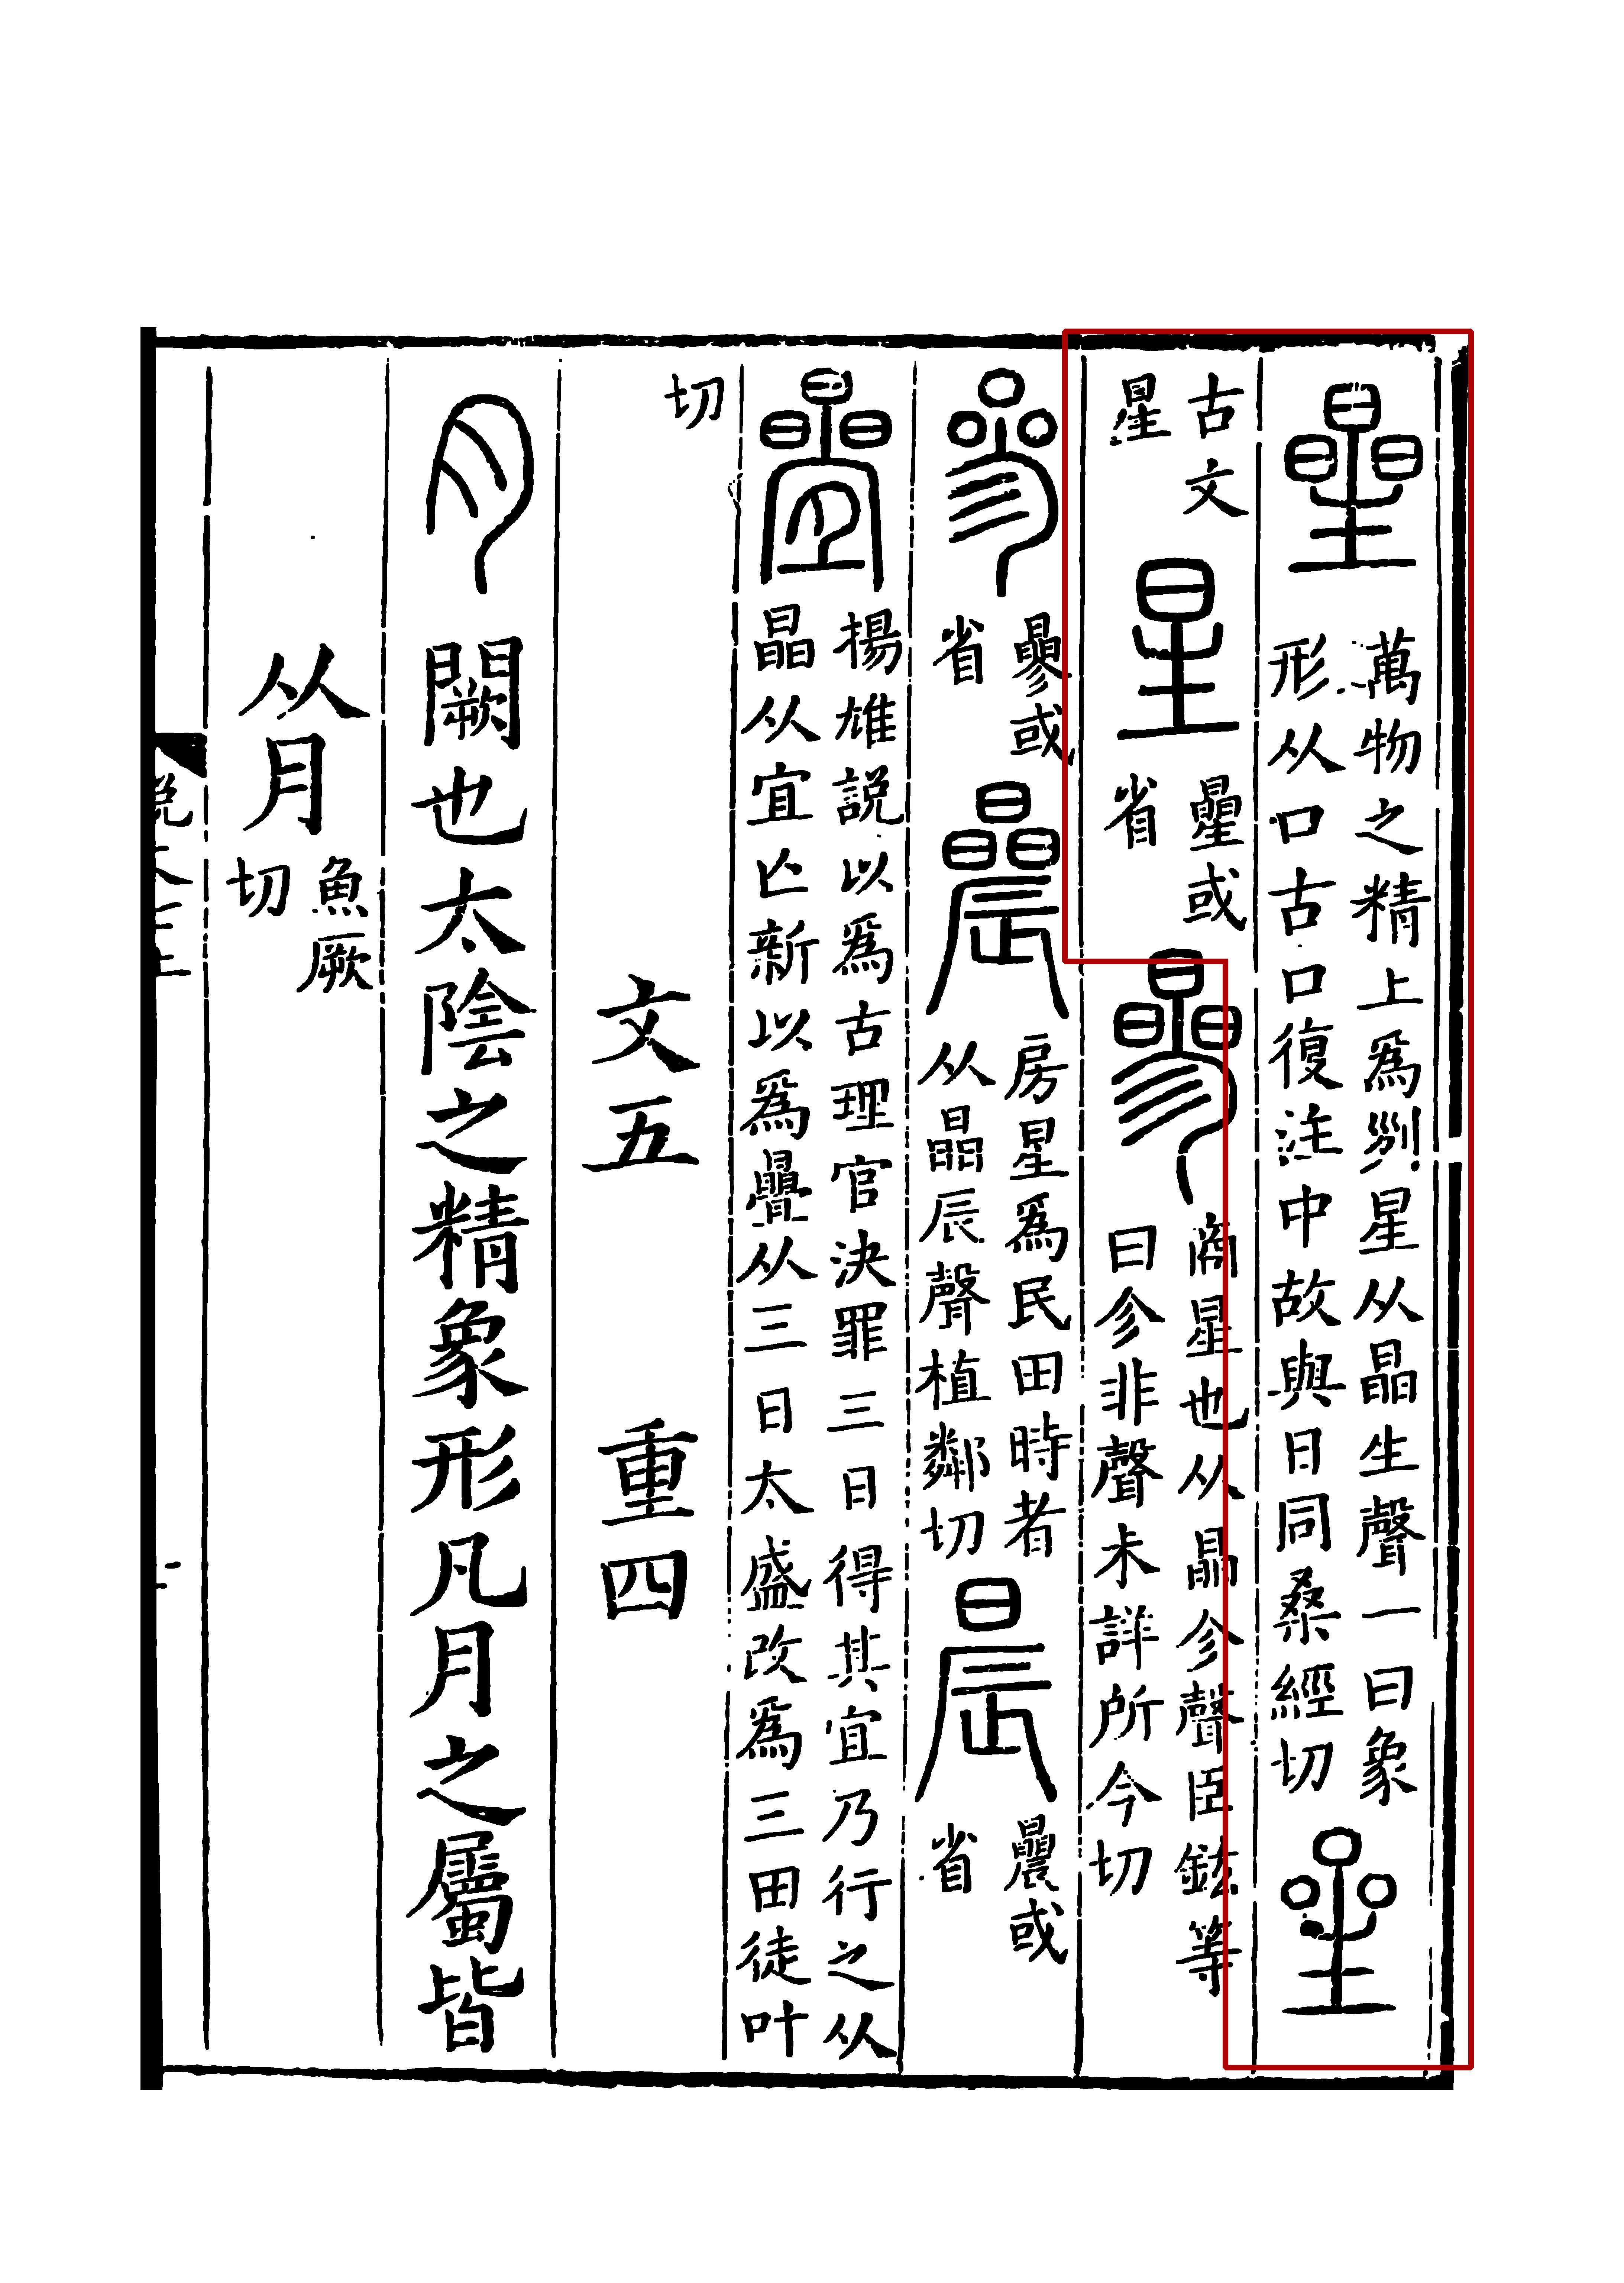 曐萬物之精上爲列星从晶生聲一曰象
形从口古口復注中故與日同桑經切
古文
星
星曐或
省
曑商星也从晶㐱聲臣鉉等
曰㐱非聲未詳所今切
參曑或
省
曟房星爲民田時者
从晶辰聲植鄰切
晨曟或
省
疊揚雄説以爲古理官決罪三日得其宜乃行之从
晶从宜亡新以爲疊从三日太盛改爲三田徒叶
切
文五 重四
月闕也太陰之精象形凡月之屬皆
从月魚厥
切